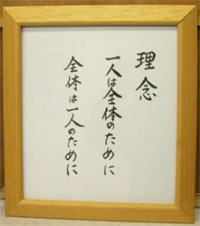 理念
一人は全体のために
全体は一人のために